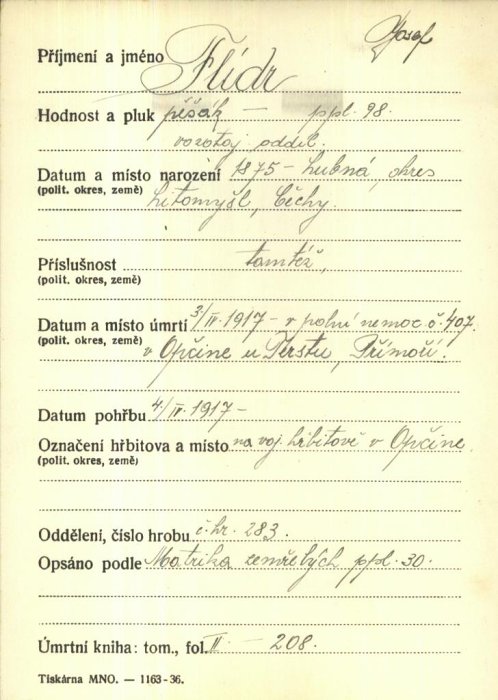 Josef
Příjmení a jméno Flídr
Hodnost a pluk pěšák — ppl. 98.
vozataj. oddíl.
Datum a místo narození 1875 - Lubná, okres
(polit. okres, země) Litomyšl, Čechy.
Příslušnost tamtéž,
(polit. okres, země)
Datum a místo úmrtí 3/IV. 1917 - v polní nemoc. č. 407.
(polit. okres, země) v Opčine u Terstu, Přímoří.
Datum pohřbu 4/IV. 1917 -
Označení hřbitova a místo na voj. hřbitově v Opčine.
(polit. okres, země)
Oddělení, číslo hrobu č. hr. 283.
Opsáno podle Matrika zemřelých ppl. 30.
Úmrtní kniha: tom., fol. II. — 208.
Tiskárna MNO. — 1163-36.